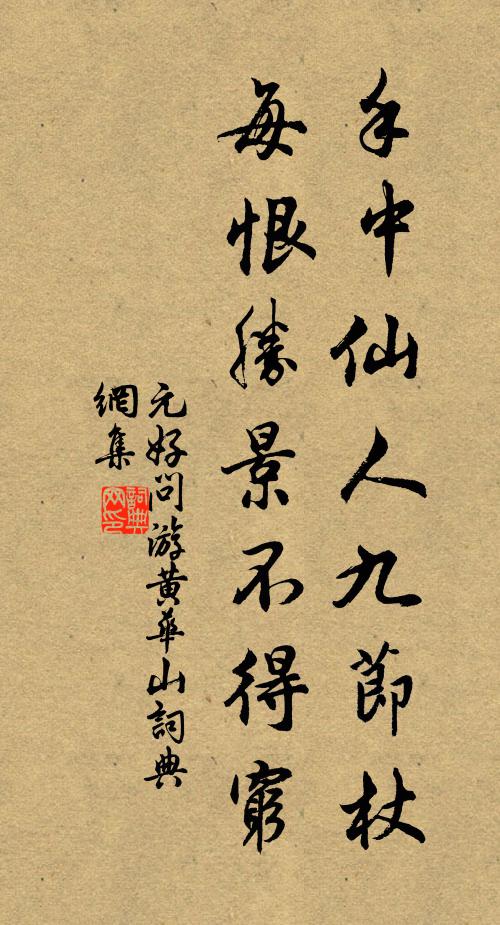 手中仙人九節杖
每恨勝景不得窮
元好问游黄華山詞典
網集
詞典
网印